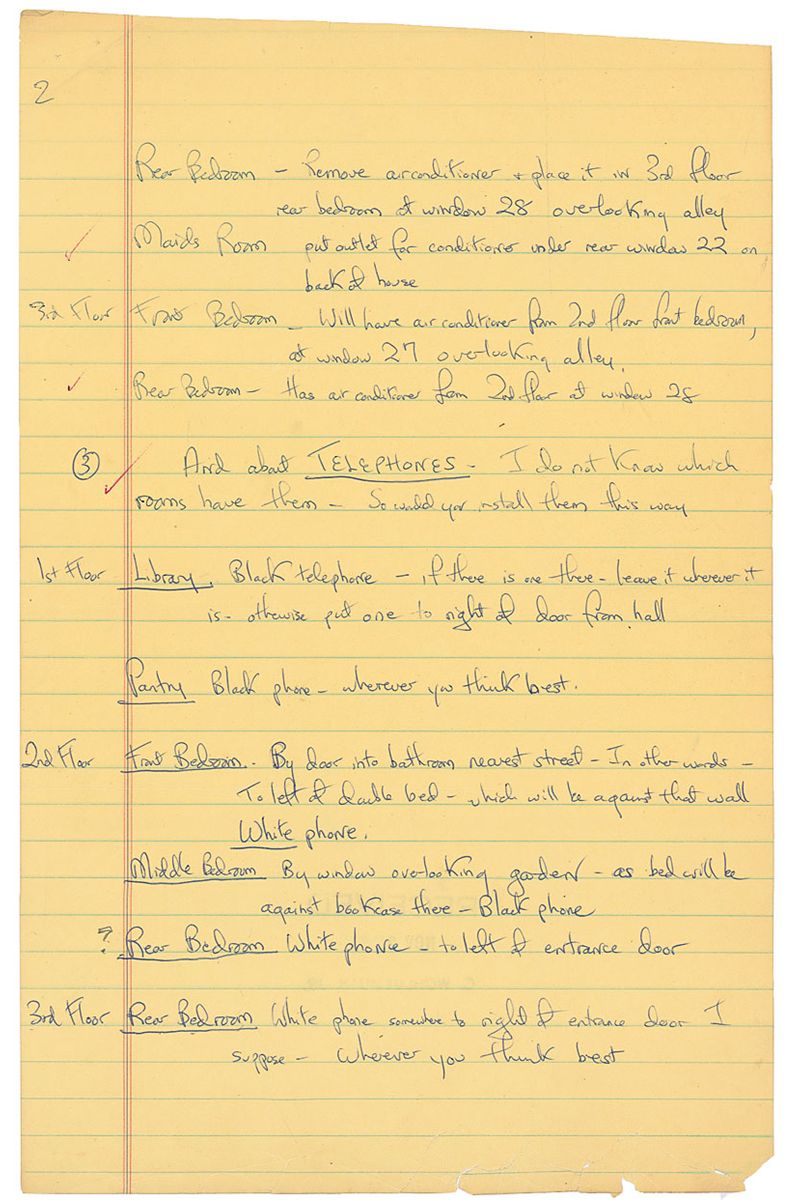 2
Rear Bedroom - Remove airconditioner + place it in 3rd floor
rear bedroom at window 28 overlooking alley
Maids Room put outlet for conditioner under rear window 22 on
back of house
3rd Floor Front Bedroom - Will have air conditioner from 2nd floor front bedroom,
at window 27 overlooking alley.
Rear Bedroom - Has air conditioner from 2nd floor at window 28
③ And about TELEPHONES - I do not know which
rooms have them - So would you install them this way
1st Floor Library. Black telephone - if there is one there - leave it wherever it
is - otherwise put one to right of door from hall
Pantry Black phone - wherever you think best.
2nd Floor Front Bedroom. By door into bathroom nearest street - In other words -
To left of double bed - which will be against that wall
White phone.
Middle Bedroom By window overlooking garden - as bed will be
against bookcase there - Black phone
? Rear Bedroom White phone - to left of entrance door
3rd Floor Rear Bedroom White phone somewhere to right of entrance door I
suppose - Wherever you think best